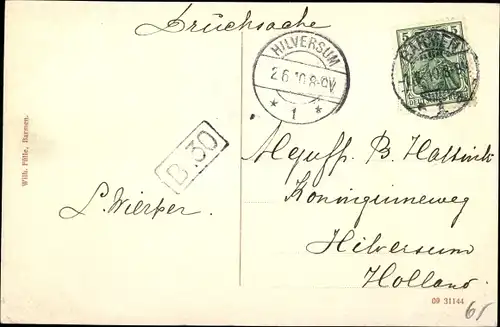 Drucksache
HILVERSUM
2.6.10.8-9V
* 1 *
5 5
BARMEN
B.30
Mejuff. B. Hattink
Koninginneweg
Hilversum
Holland
Wilh. Fülle, Barmen.
09 31144
61